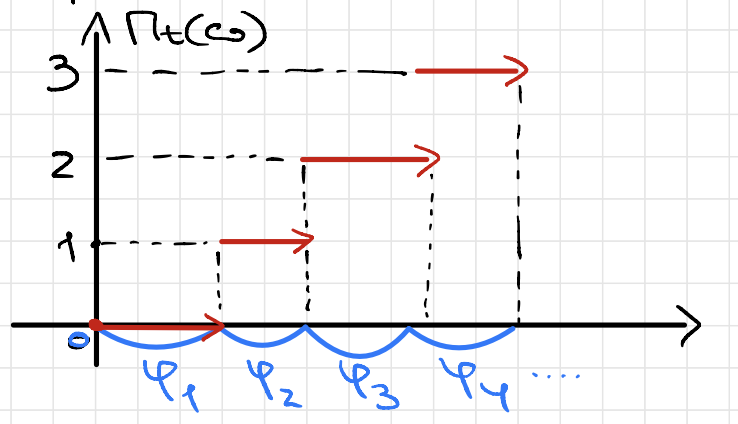 Π_t(ω)
3
2
1
0
φ_1 φ_2 φ_3 φ_4 ....